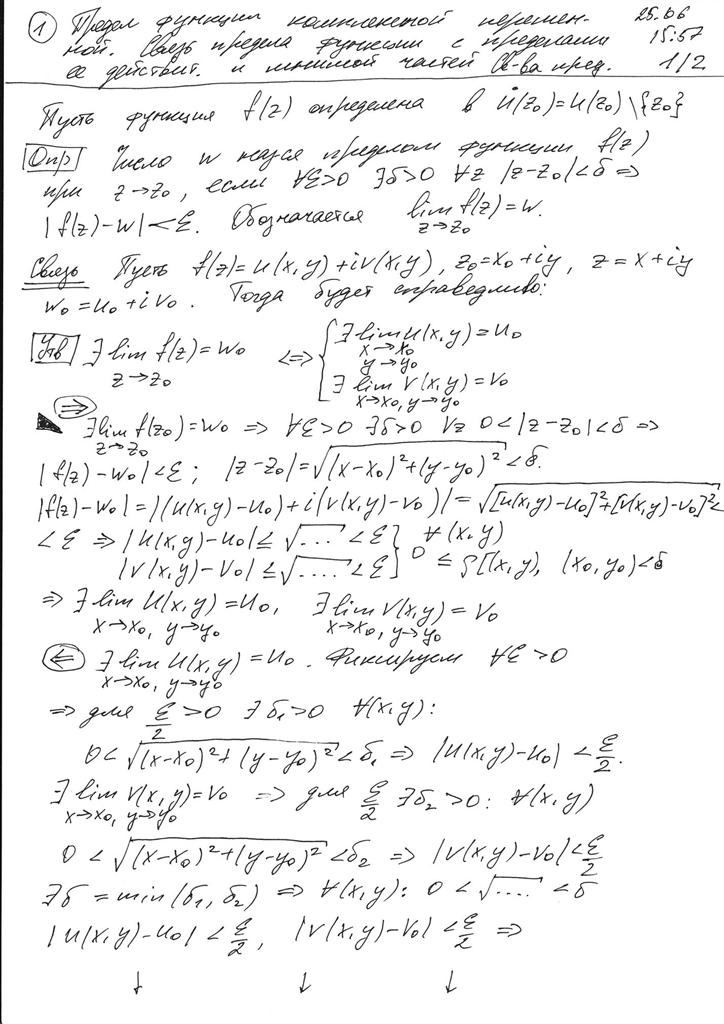 ① Предел функции комплексной перемен- 25.06
ной. Связь предела функции с пределами 15:57
ее действит. и мнимой частей Св-ва пред. 1/2
Пусть функция f(z) определена в U̇(z₀)=U(z₀)\{z₀}
Опр Число w наз-ся пределом функции f(z)
при z→z₀, если ∀ε>0 ∃δ>0 ∀z |z-z₀|<δ ⇒
|f(z)-w|<ε. Обозначается lim f(z)=w.
z→z₀
Связь Пусть f(z)=u(x,y)+iv(x,y), z₀=x₀+iy, z=x+iy
w₀=u₀+iv₀. Тогда будет справедливо:
Утв ∃ lim f(z)=w₀ ⇔ { ∃ lim u(x,y)=u₀
z→z₀ x→x₀ y→y₀
∃ lim v(x,y)=v₀
x→x₀, y→y₀
⇒
∃ lim f(z₀)=w₀ ⇒ ∀ε>0 ∃δ>0 ∀z 0<|z-z₀|<δ ⇒
z→z₀
|f(z)-w₀|<ε; |z-z₀|=√((x-x₀)²+(y-y₀)²)<δ.
|f(z)-w₀|=|(u(x,y)-u₀)+i(v(x,y)-v₀)|=√([u(x,y)-u₀]²+[v(x,y)-v₀]²)<
<ε ⇒ |u(x,y)-u₀|≤√.... <ε} ∀(x,y)
|v(x,y)-v₀|≤√.... <ε} 0≤ρ[(x,y), (x₀,y₀)<δ
⇒ ∃ lim u(x,y)=u₀, ∃ lim v(x,y)=v₀
x→x₀, y→y₀ x→x₀, y→y₀
⇐ ∃ lim u(x,y)=u₀. Фиксируем ∀ε>0
x→x₀, y→y₀
⇒ для ε/2>0 ∃δ₁>0 ∀(x,y):
0<√((x-x₀)²+(y-y₀)²)<δ₁ ⇒ |u(x,y)-u₀|<ε/2.
∃ lim v(x,y)=v₀ ⇒ для ε/2 ∃δ₂>0: ∀(x,y)
x→x₀, y→y₀
0<√((x-x₀)²+(y-y₀)²)<δ₂ ⇒ |v(x,y)-v₀|<ε/2
∃δ=min(δ₁,δ₂) ⇒ ∀(x,y): 0<√.... <δ
|u(x,y)-u₀|<ε/2, |v(x,y)-v₀|<ε/2 ⇒
↓ ↓ ↓